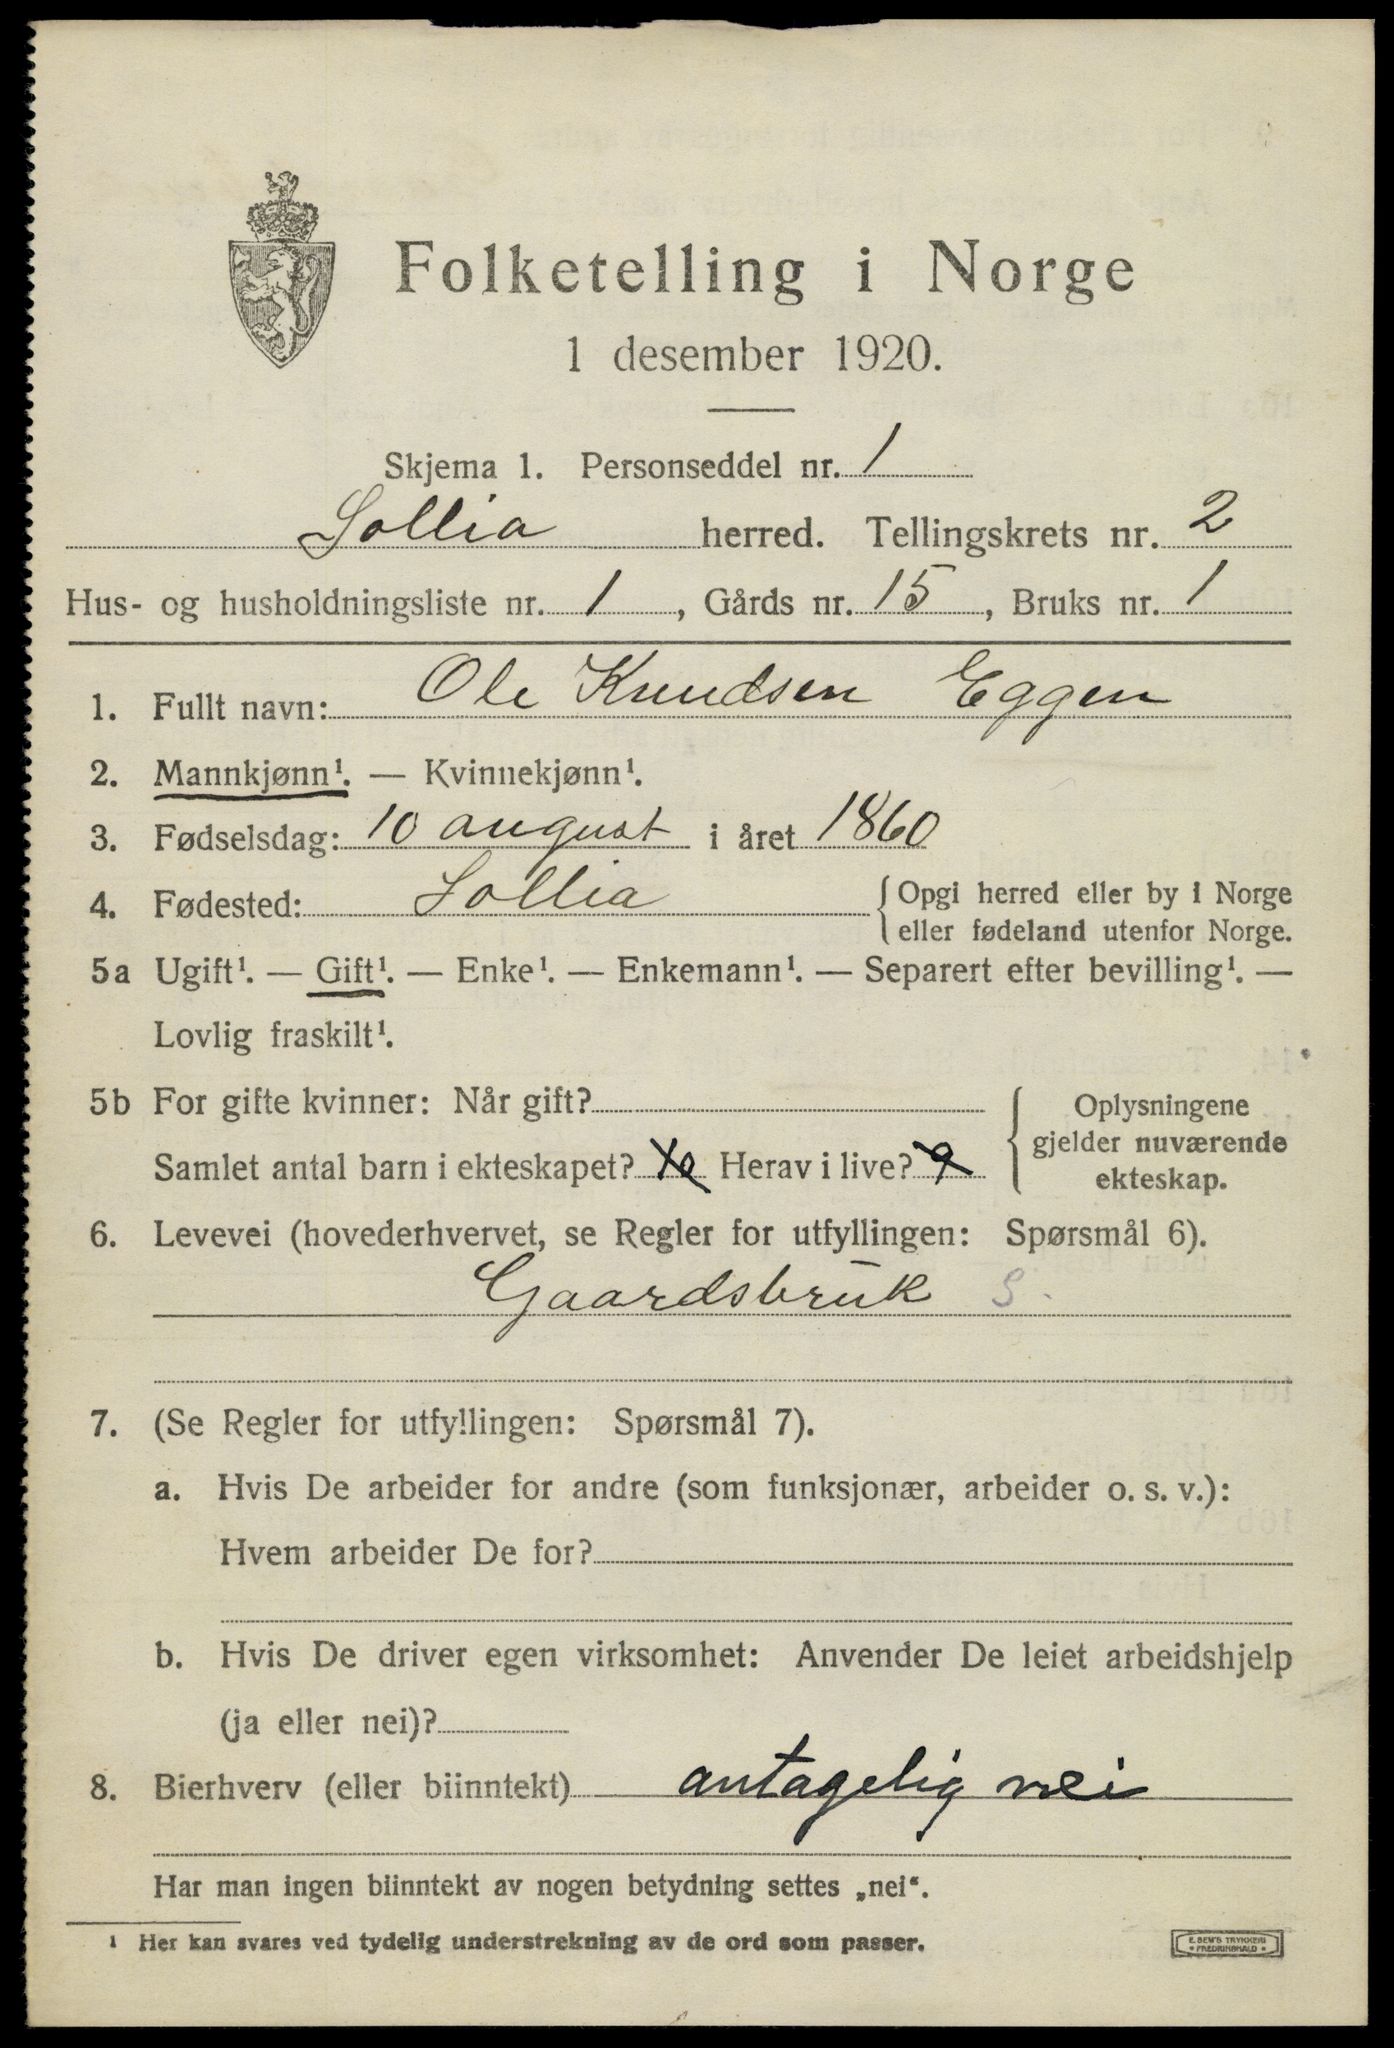 Folketelling i Norge
1 desember 1920.
Skjema 1. Personseddel nr. 1
Sollia herred. Tellingskrets nr. 2
Hus- og husholdningsliste nr. 1, Gårds nr. 15, Bruks nr. 1
1. Fullt navn: Ole Knudsen Eggen
2. Mannkjønn¹. — Kvinnekjønn¹.
3. Fødselsdag: 10 august i året 1860
4. Fødested: Sollia { Opgi herred eller by i Norge
eller fødeland utenfor Norge.
5a Ugift¹. — Gift¹. — Enke¹. — Enkemann¹. — Separert efter bevilling¹. —
Lovlig fraskilt¹.
5b For gifte kvinner: Når gift?
Samlet antal barn i ekteskapet? 10 Herav i live? 9
Oplysningene
gjelder nuværende
ekteskap.
6. Levevei (hovederhvervet, se Regler for utfyllingen: Spørsmål 6).
Gaardsbruk S.
7. (Se Regler for utfyllingen: Spørsmål 7).
a. Hvis De arbeider for andre (som funksjonær, arbeider o. s. v.):
Hvem arbeider De for?
b. Hvis De driver egen virksomhet: Anvender De leiet arbeidshjelp
(ja eller nei)?
8. Bierhverv (eller biinntekt) antagelig nei
Har man ingen biinntekt av nogen betydning settes „nei“.
¹ Her kan svares ved tydelig understrekning av de ord som passer.
E. SEM'S TRYKKERI
• FREDRIKSHALD •